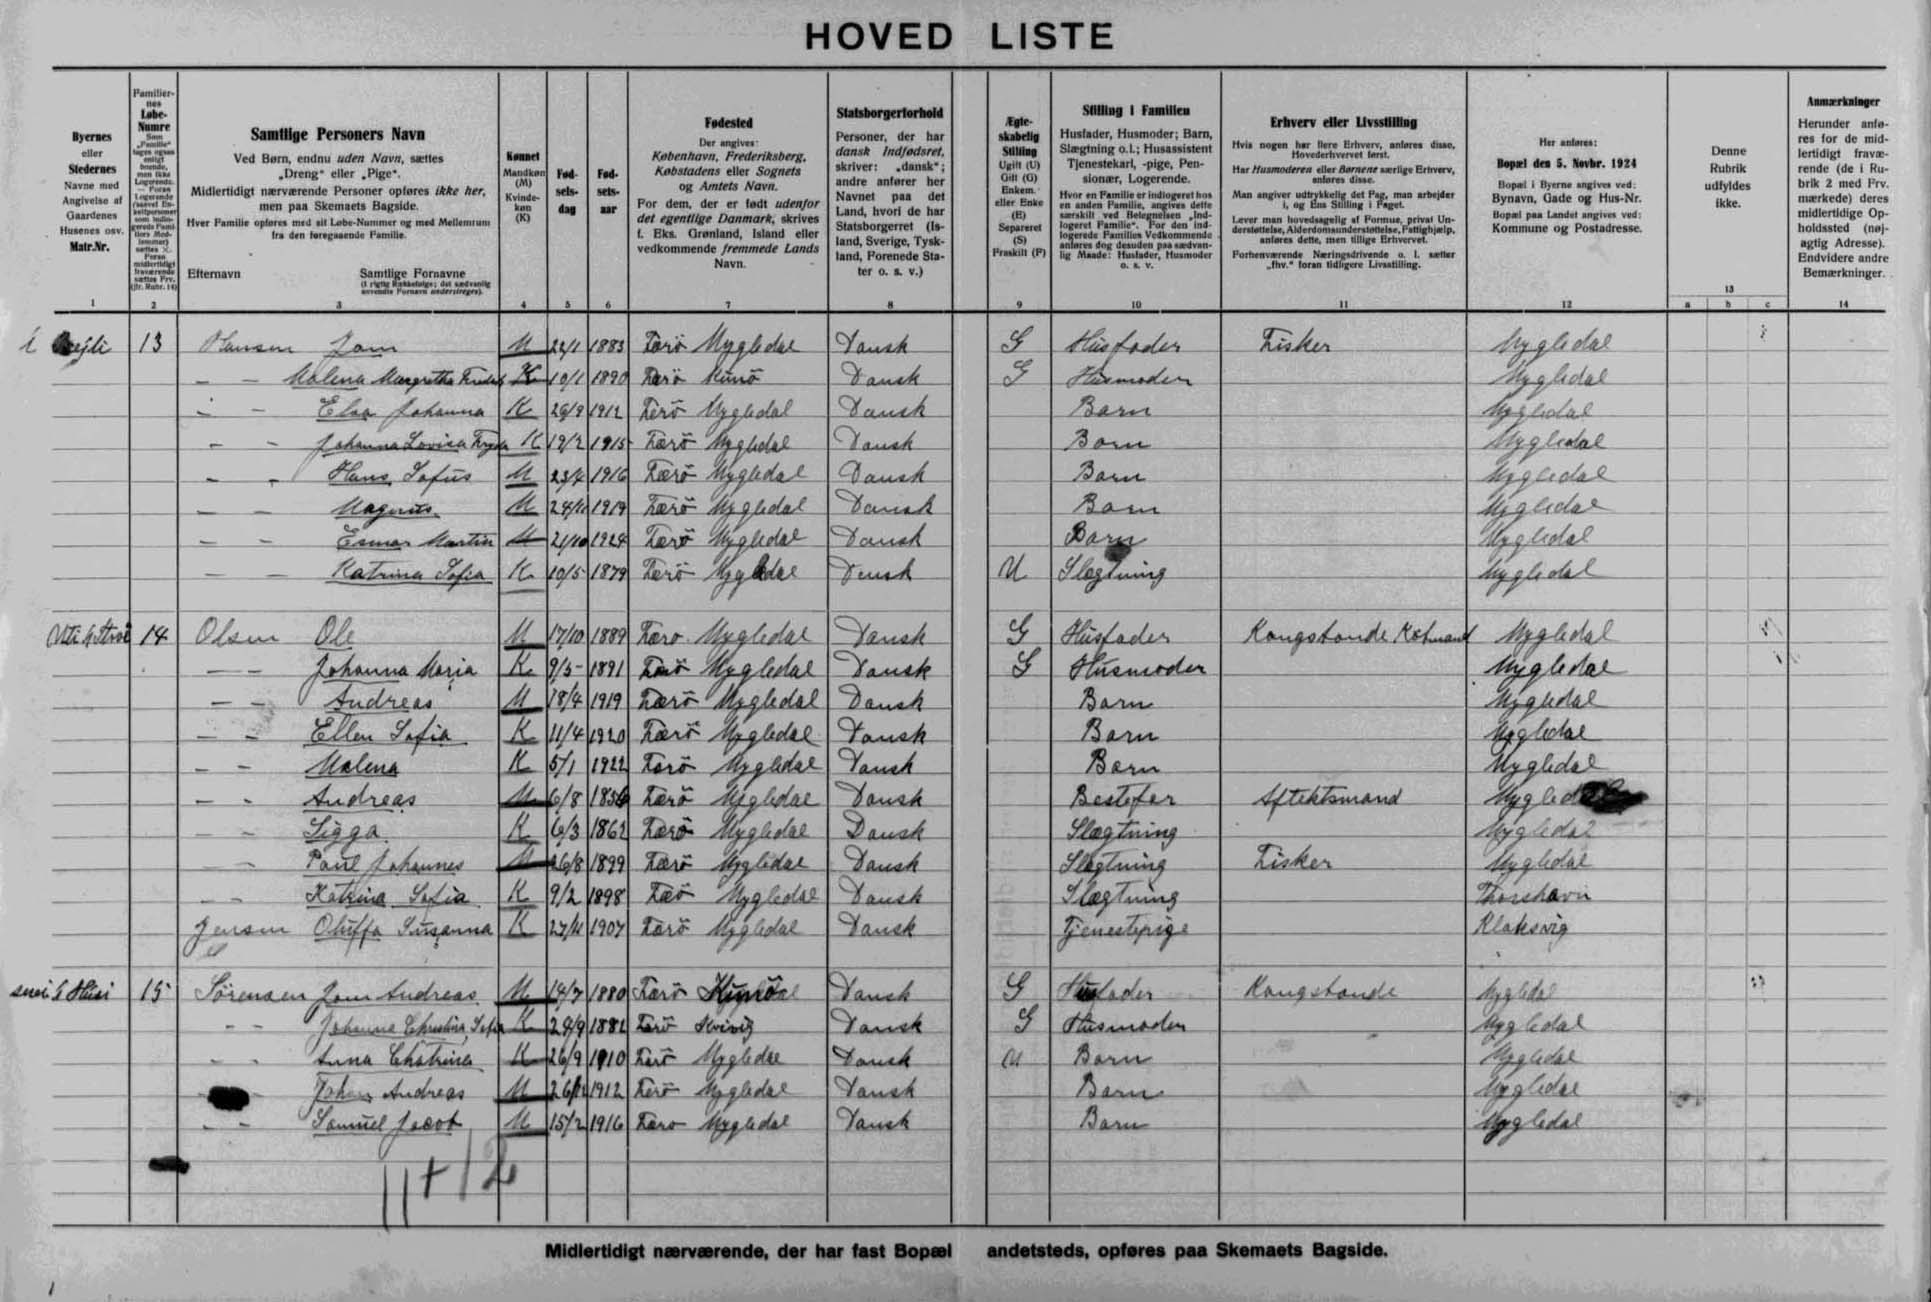 HOVED LISTE
Byernes
eller
Stedernes
Navne med
Angivelse af
Gaardenes
Husenes osv.
Matr.Nr.
1
Familier-
nes
Løbe-
Numre
2
Samtlige Personers Navn
Ved Børn, endnu uden Navn, sættes
„Dreng" eller „Pige".
Midlertidigt nærværende Personer opføres ikke her,
men paa Skemaets Bagside.
Hver Familie opføres med sit Løbe-Nummer og med Mellemrum
fra den foregaaende Familie.
Efternavn Samtlige Fornavne
(i rigtig Rækkefølge; det sædvanlig
anvendte Fornavn understreges).
3
Kønnet
Mandkøn
(M)
Kvinde-
køn
(K)
4
Fød-
sels-
dag
5
Fød-
sels-
aar
6
Fødested
Der angives:
København, Frederiksberg,
Købstadens eller Sognets
og Amtets Navn.
For dem, der er født udenfor
det egentlige Danmark, skrives
f. Eks. Grønland, Island eller
vedkommende fremmede Lands
Navn.
7
Statsborgerforhold
Personer, der har
dansk Indfødsret,
skriver: „dansk";
andre anfører her
Navnet paa det
Land, hvori de har
Statsborgerret (Is-
land, Sverige, Tysk-
land, Forenede Sta-
ter o. s. v.)
8
Ægte-
skabelig
Stilling
Ugift (U)
Gift (G)
Enkem.
eller Enke
(E)
Separeret
(S)
Fraskilt (F)
9
Stilling i Familien
Husfader, Husmoder; Barn,
Slægtning o.l.; Husassistent
Tjenestekarl, -pige, Pen-
sionær, Logerende.
Hvor en Familie er indlogeret hos
en anden Familie, angives dette
særskilt ved Betegnelsen „Ind-
logeret Familie". For den ind-
logerede Families Vedkommende
anføres dog desuden paa sædvan-
lig Maade: Husfader, Husmoder
o. s. v.
10
Erhverv eller Livsstilling
Hvis nogen har flere Erhverv, anføres disse,
Hovederhvervet først.
Har Husmoderen eller Børnene særlige Erhverv,
anføres disse.
Man angiver udtrykkelig det Fag, man arbejder
i, og Ens Stilling i Faget.
Lever man hovedsagelig af Formue, privat Un-
derstøttelse, Alderdomsunderstøttelse, Fattighjælp,
anføres dette, men tillige Erhvervet.
Forhenværende Næringsdrivende o. l. sætter
„fhv." foran tidligere Livsstilling.
11
Her anføres:
Bopæl den 5. Novbr. 1924
Bopæl i Byerne angives ved:
Bynavn, Gade og Hus-Nr.
Bopæl paa Landet angives ved:
Kommune og Postadresse.
12
Denne
Rubrik
udfyldes
ikke.
13
a b c
Anmærkninger
Herunder anfø-
res for de mid-
lertidigt fravæ-
rende (de i Ru-
brik 2 med Frv.
mærkede) deres
midlertidige Op-
holdssted (nøj-
agtig Adresse).
Endvidere andre
Bemærkninger.
14
13 Hansen Jom M 1883 Færö Mygledal Dansk G Husfader Fisker Mygledal
– – Malena Margretha K 10/1 1890 Færö Kunö Dansk G Husmoder Mygledal
– – Elsa Johanna K 26/9 1912 Færö Mygledal Dansk Barn Mygledal
– – Johanna Lovisa K 19/2 1915 Færö Mygledal Dansk Barn Mygledal
– – Hans Sofus M 23/4 1916 Færö Mygledal Dansk Barn Mygledal
– – Magnus M 1919 Færö Mygledal Dansk Barn Mygledal
– – Esmar Martin M 21/10 1924 Færö Mygledal Dansk Barn Mygledal
– – Katrina Sofia K 10/5 1879 Færö Mygledal Dansk U Slægtning Mygledal
14 Olsen Ole M 17/10 1889 Færo Mygledal Dansk G Husfader Kongsbonde, Købmand Mygledal
– – Johanna Maria K 9/5 1891 Færö Mygledal Dansk G Husmoder Mygledal
– – Andreas M 18/4 1919 Færö Mygledal Dansk Barn Mygledal
– – Ellen Sofia K 11/4 1920 Færö Mygledal Dansk Barn Mygledal
– – Malena K 5/1 1922 Færö Mygledal Dansk Barn Mygledal
– – Andreas M 6/8 1836 Færö Mygledal Dansk Bestefar Aftektsmand
– – Sigga K 6/3 1862 Færö Mygledal Dansk Slægtning Mygledal
– – Paul Johannes M 26/8 1899 Færö Mygledal Dansk Slægtning Fisker Mygledal
– – Katrina Sofia K 9/2 1898 Færö Mygledal Dansk Slægtning Thorshavn
Jensen Oluffa Susanna K 27/11 1907 Færö Mygledal Dansk Tjenestepige Klaksvig
15 Sörensen Jom Andreas M 14/7 1880 Færö Kunö Dansk G Husfader Kongsbonde Mygledal
– – Johanna Christina Sofia K 29/9 1882 Færö Kvivig Dansk G Husmoder Mygledal
– – Anna Chatrina K 26/9 1910 Færö Mygledal Dansk U Barn Mygledal
Johan Andreas M 1912 Færö Mygledal Dansk Barn Mygledal
– – Samuel Jacob M 15/2 1916 Færo Mygledal Dansk Barn Mygledal
11+12
Midlertidigt nærværende, der har fast Bopæl andetsteds, opføres paa Skemaets Bagside.